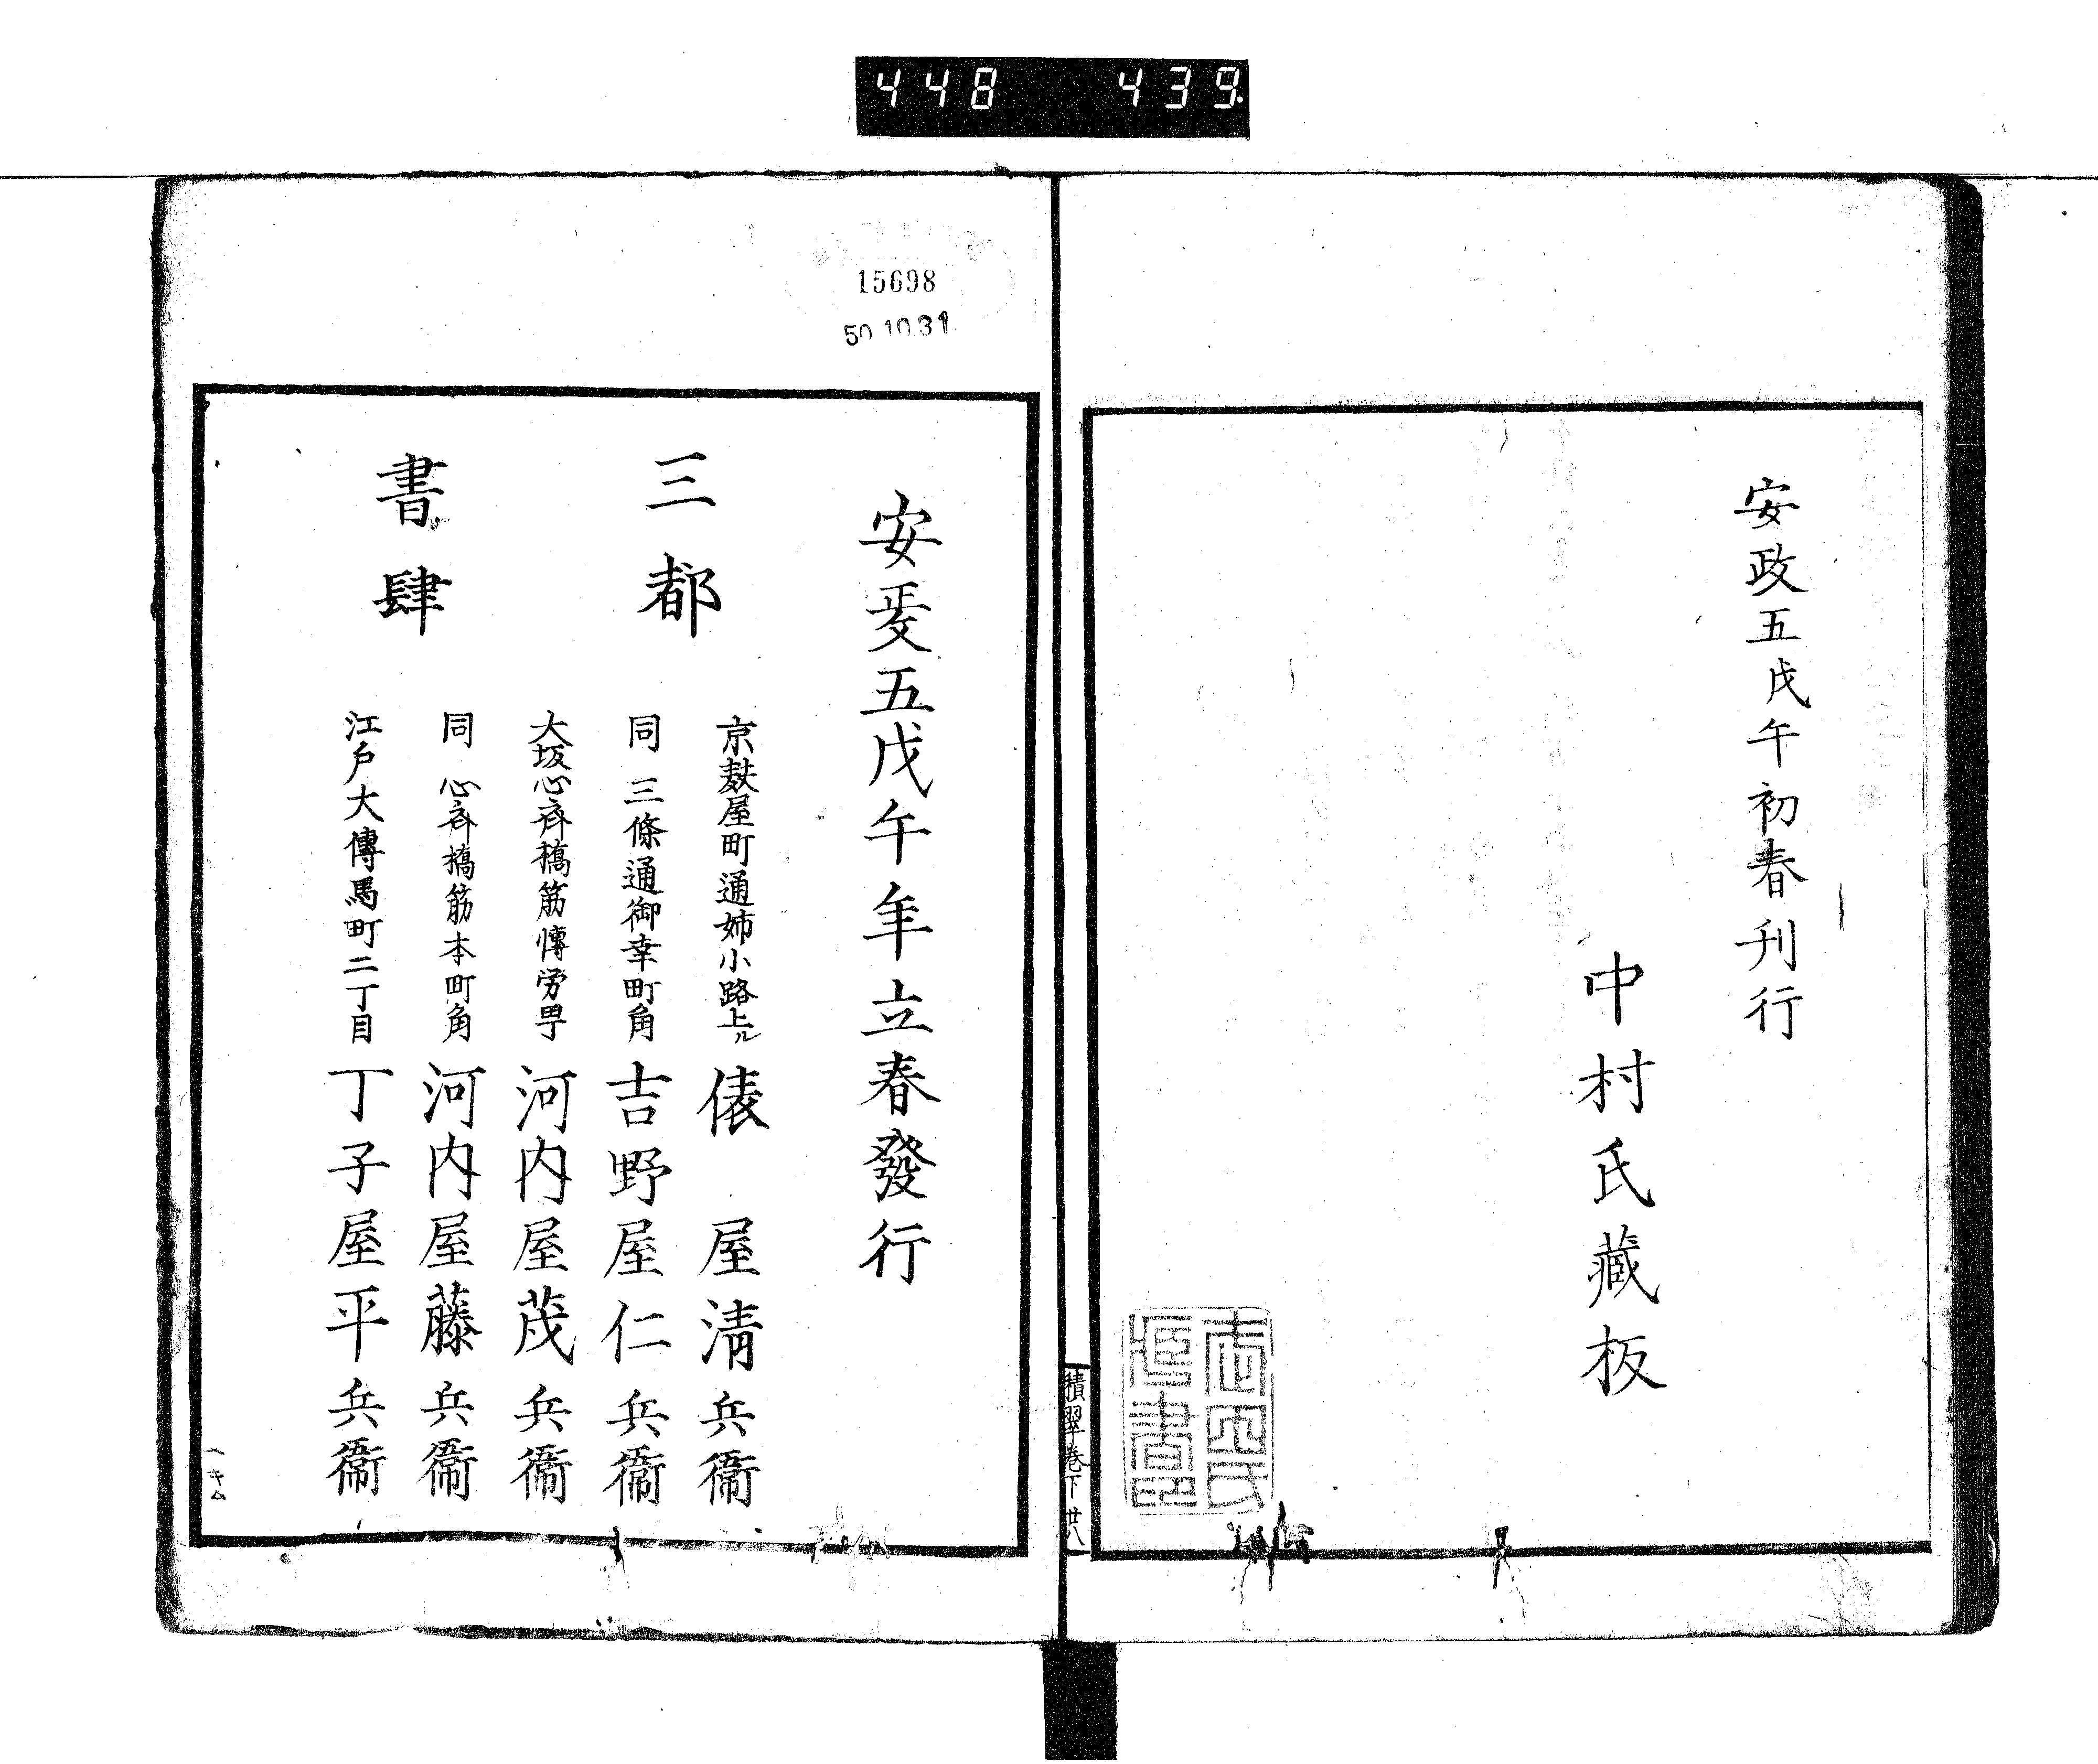 448 439
安政五戊午初春刊行
中村氏藏板
積翠巻下 廿八
15698
50 10 31
安政五戊午年立春發行
三都
書肆
京麸屋町通姉小路上ル 俵屋清兵衞
同 三條通御幸町角 吉野屋仁兵衞
大坂心斉橋筋博労町 河内屋茂兵衞
同 心斉橋筋本町角 河内屋藤兵衞
江戸大傳馬町二丁目 丁子屋平兵衞